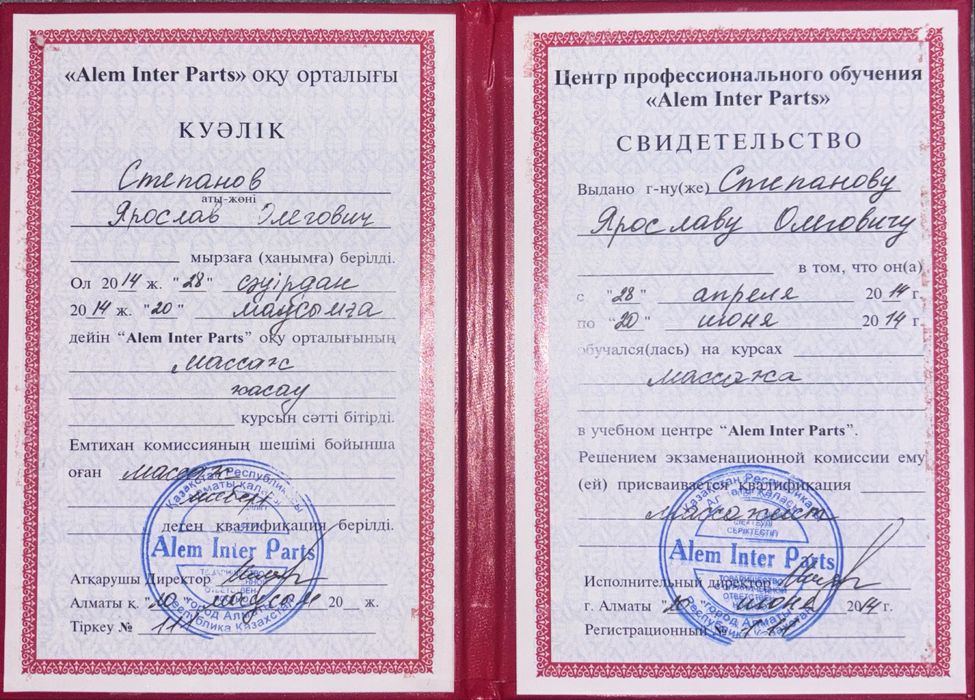 «Alem Inter Parts» оқу орталығы
КУӘЛІК
Степанов
аты-жөні
Ярослав Олегович
мырзаға (ханымға) берілді.
Ол 2014 ж. "28" сәуірдан
2014 ж. "20" маусымға
дейін “Alem Inter Parts” оқу орталығының
массаж
жасау
курсын сәтті бітірді.
Емтихан комиссияның шешімі бойынша
оған массаж
деген квалификация берілді.
Атқарушы Директор
Алматы қ. "20" маусым 20 ж.
Тіркеу №
Қазақстан Республикасы
Алматы қаласы
Alem Inter Parts
город Алматы
Республика Казахстан
Центр профессионального обучения
«Alem Inter Parts»
СВИДЕТЕЛЬСТВО
Выдано г-ну(же) Степанову
Ярославу Олеговичу
в том, что он(а)
с "28" апреля 2014 г.
по "20" июня 2014 г.
обучался(лась) на курсах
массажа
в учебном центре “Alem Inter Parts”.
Решением экзаменационной комиссии ему
(ей) присваивается квалификация
массажист
Исполнительный директор
г. Алматы "20" июня 2014 г.
Регистрационный №
Қазақстан Республикасы
Алматы қаласы
СЕРІКТЕСТІГІ
Alem Inter Parts
ТОВАРИЩЕСТВО
город Алматы
Республика Казахстан